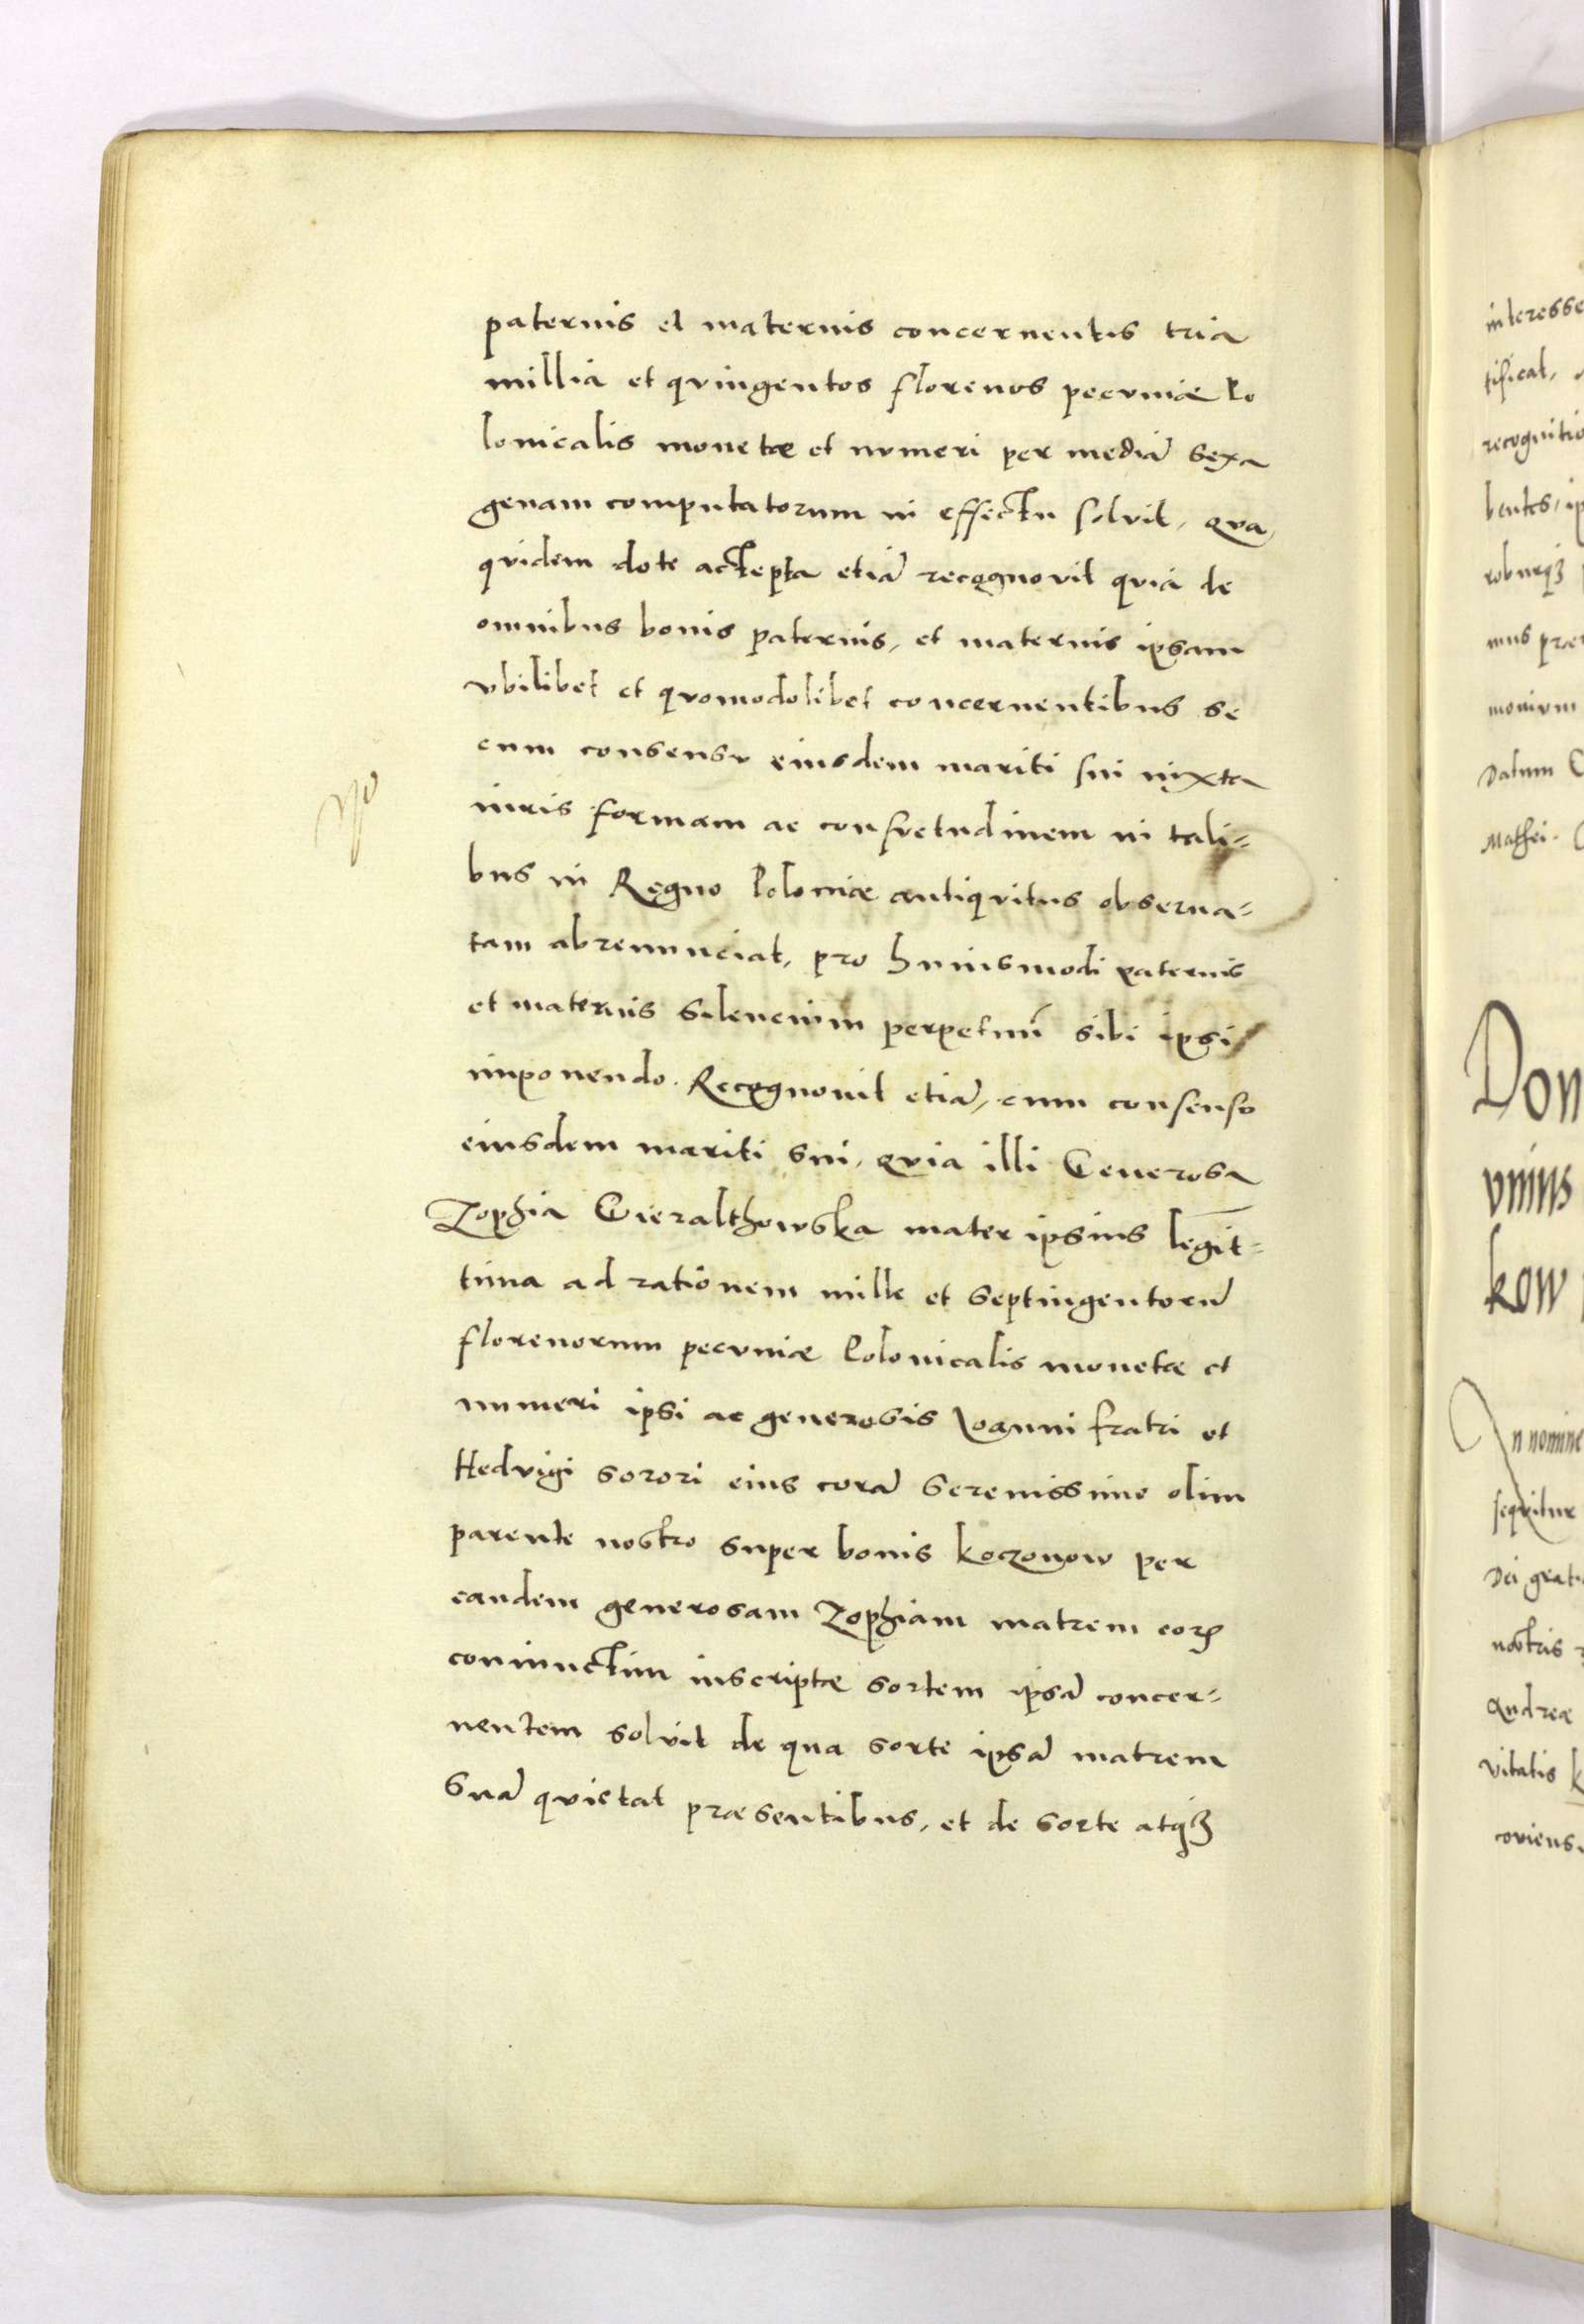 paternis et maternis concernentis tria
millia et qvingentos florenos pecvniæ Po
lonicalis monetæ et nvmeri per mediā sexa
genam computatorum in effectu solvit, qva
qvidem dote acktepta etiā recognovit qvia de
omnibus bonis paternis, et maternis ipsam
vbilibet et qvomodolibet concernentibus se
cum consensv eiusdem mariti sui iuxta
iuris formam ac consvetudinem in tali=
bus in Regno Poloniæ antiqvitus obserua=
tam abrenunciat, pro huiusmodi paternis
et maternis silencium perpetuū sibi ipsi
imponendo. Recognouit etiā, cum consenso
eiusdem mariti sui, qvia illi Generosa
Zophia Gieralthowska mater ipsius legit=
tima ad rationem mille et septingentorū
florenorum pecvniæ Polonicalis monetæ et
numeri ipsi ac generosis Ioanni fratri et
Hedvigi sorori eius corā serenissimo olim
parente nostro super bonis Koczonow per
eandem generosam Zophiam matrem eorꝝ
coniunctim inscriptæ sortem ipsā concer=
nentem solvit de qua sorte ipsā matrem
suā qvietat præsentibus, et de sorte atqꝫ
interesse
tificat,
recognitio
bentes, ip
roburqꝫ
mus præ
monivm
Datum C
Mathei.
Don
vnius
kow
In nomine
seqvitur
Dei grati
nostris
Andreæ
vitatis K
coviens